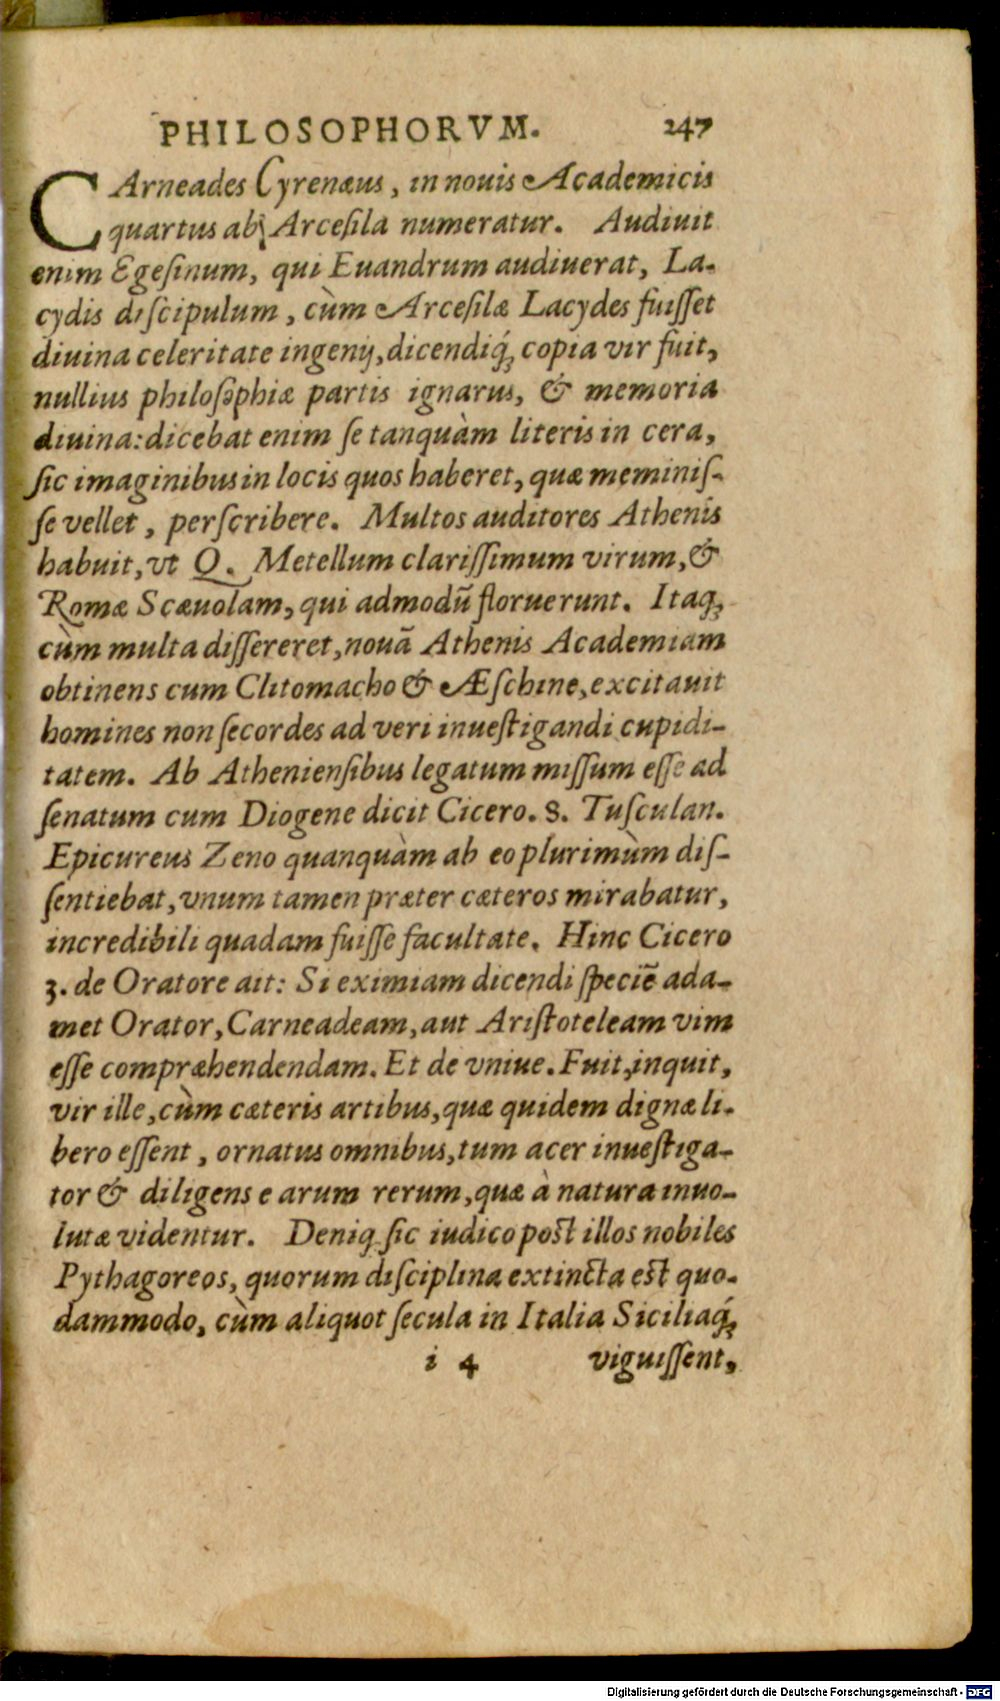 PHILOSOPHORVM. 247
CArneades Cyrenæus, in nouis Academicis
quartus ab Arceſila numeratur. Audiuit
enim Egeſinum, qui Euandrum audiuerat, La-
cydis diſcipulum, cùm Arceſilæ Lacydes fuiſſet
diuina celeritate ingenij, dicendiq́; copia vir fuit,
nullius philoſophiæ partis ignarus, & memoria
diuina: dicebat enim ſe tanquàm literis in cera,
ſic imaginibus in locis quos haberet, quæ meminiſ-
ſe vellet, perſcribere. Multos auditores Athenis
habuit, vt Q. Metellum clariſſimum virum, &
Romæ Scæuolam, qui admodũ floruerunt. Itaq;
cùm multa diſſereret, nouã Athenis Academiam
obtinens cum Clitomacho & Æſchine, excitauit
homines non ſecordes ad veri inueſtigandi cupidi-
tatem. Ab Athenienſibus legatum miſſum eſſe ad
ſenatum cum Diogene dicit Cicero. 8. Tuſculan.
Epicureus Zeno quanquàm ab eo plurimùm diſ-
ſentiebat, vnum tamen præter cæteros mirabatur,
incredibili quadam fuiſſe facultate. Hinc Cicero
3. de Oratore ait: Si eximiam dicendi ſpeciẽ ada-
met Orator, Carneadeam, aut Ariſtoteleam vim
eſſe compræhendendam. Et de vniue. Fuit, inquit,
vir ille, cùm cæteris artibus, quæ quidem dignæ li-
bero eſſent, ornatus omnibus, tum acer inueſtiga-
tor & diligens earum rerum, quæ à natura inuo-
lutæ videntur. Deniq; ſic iudico poſt illos nobiles
Pythagoreos, quorum diſciplina extincta eſt quo-
dammodo, cùm aliquot ſecula in Italia Siciliaq́;
i 4 viguiſſent,
Digitalisierung gefördert durch die Deutsche Forschungsgemeinschaft - DFG